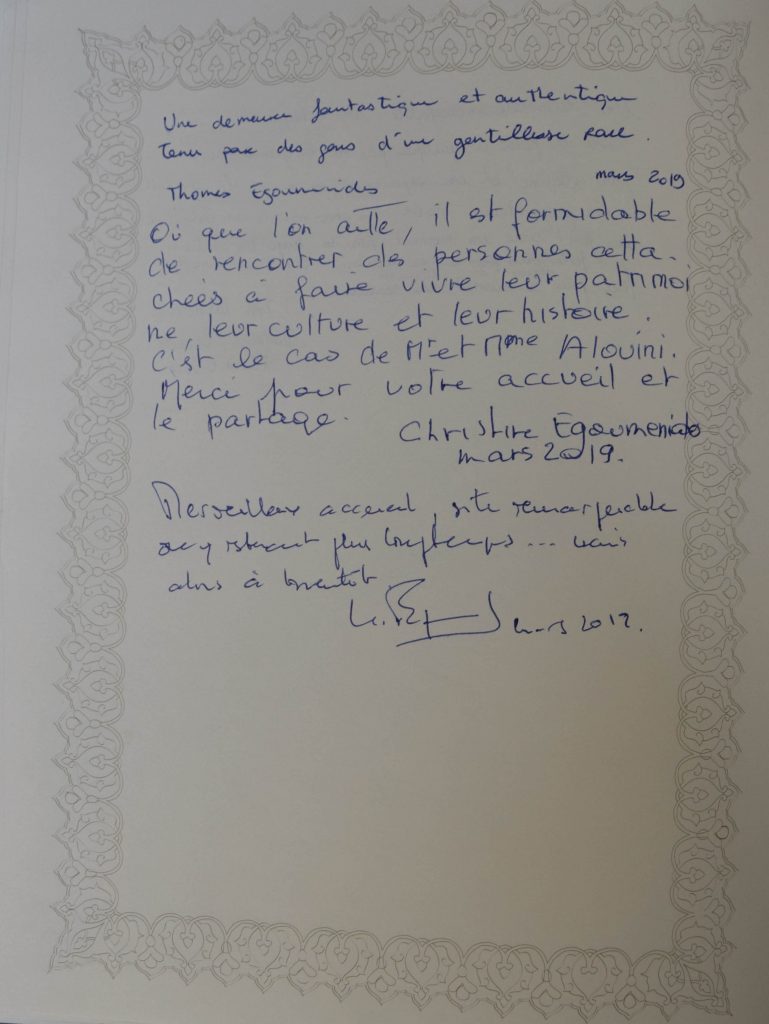 Une demeure fantastique et authentique
tenu par des gens d'une gentillesse rare.
mars 2019
Thomas Egoumenides
Où que l'on aille, il est formidable
de rencontrer des personnes atta-
chées à faire vivre leur patrimoi
ne, leur culture et leur histoire.
C'est le cas de Mr et Mme Alouini.
Merci pour votre accueil et
le partage.
Christine Egoumenides
mars 2019.
Merveilleux accueil, site remarquable
plus longtemps... mais
alors à bientôt
mars